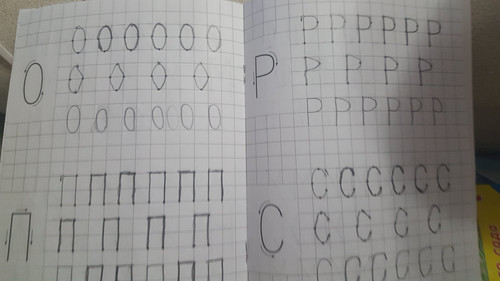 О
О О О О О О
О О О О
О О О О О О
П
П П П П П П
П П П П
П П П П П П
Р
Р Р Р Р Р Р
Р Р Р Р
Р Р Р Р Р Р
С
С С С С С С
С С С С
С С С С С С